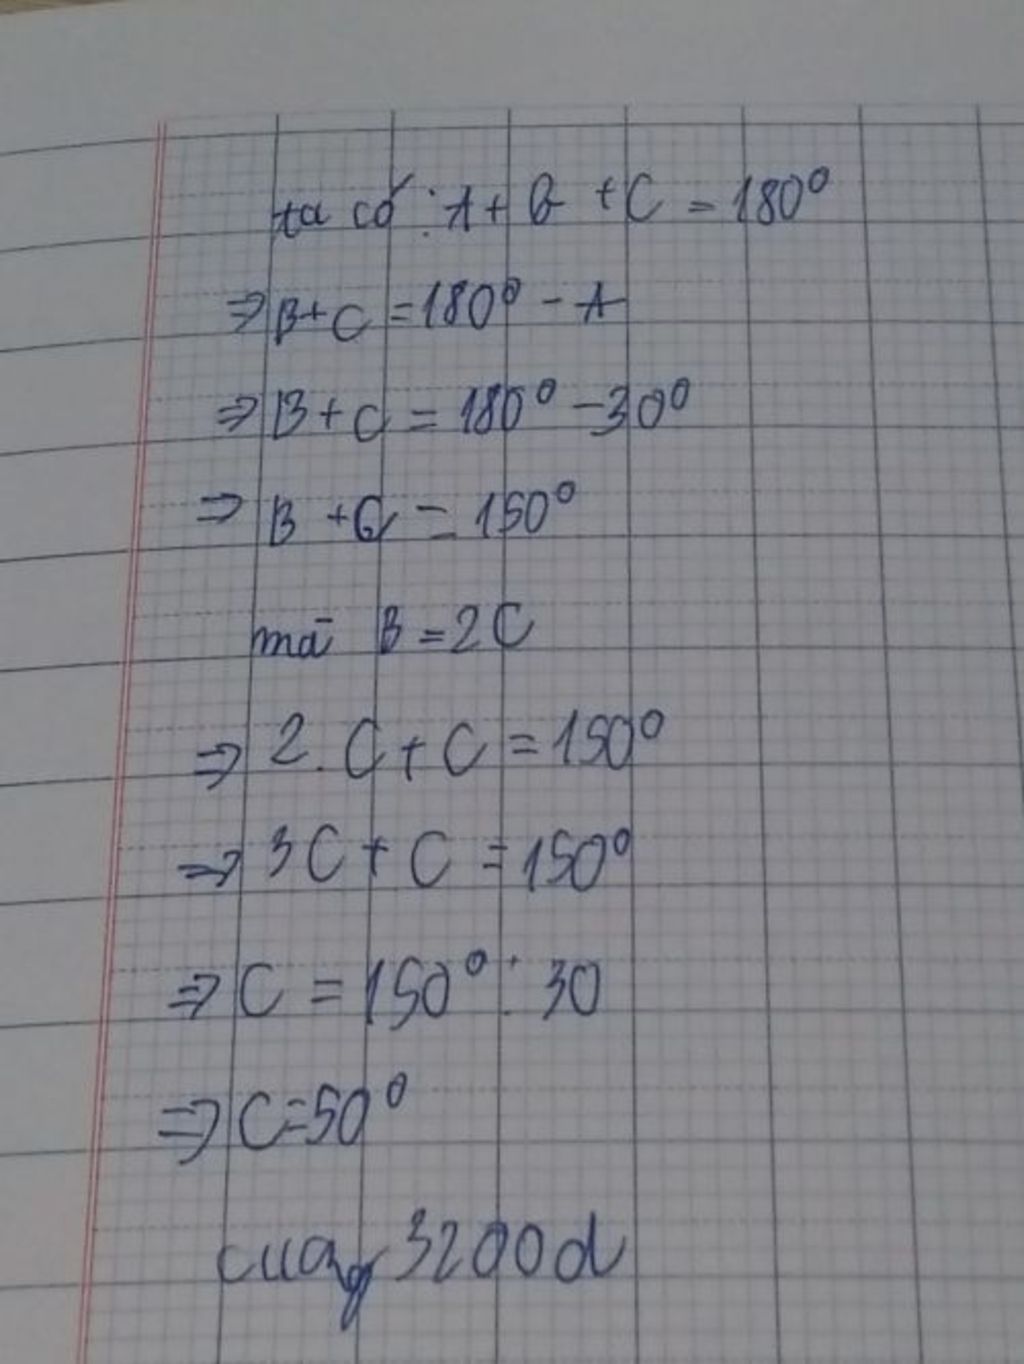 ta có: A + B + C = 180°
⇒ B + C = 180° - A
⇒ B + C = 180° - 30°
⇒ B + C = 150°
mà B = 2C
⇒ 2. C + C = 150°
⇒ 3C + C = 150°
⇒ C = 150° : 30
⇒ C = 50°
3200d